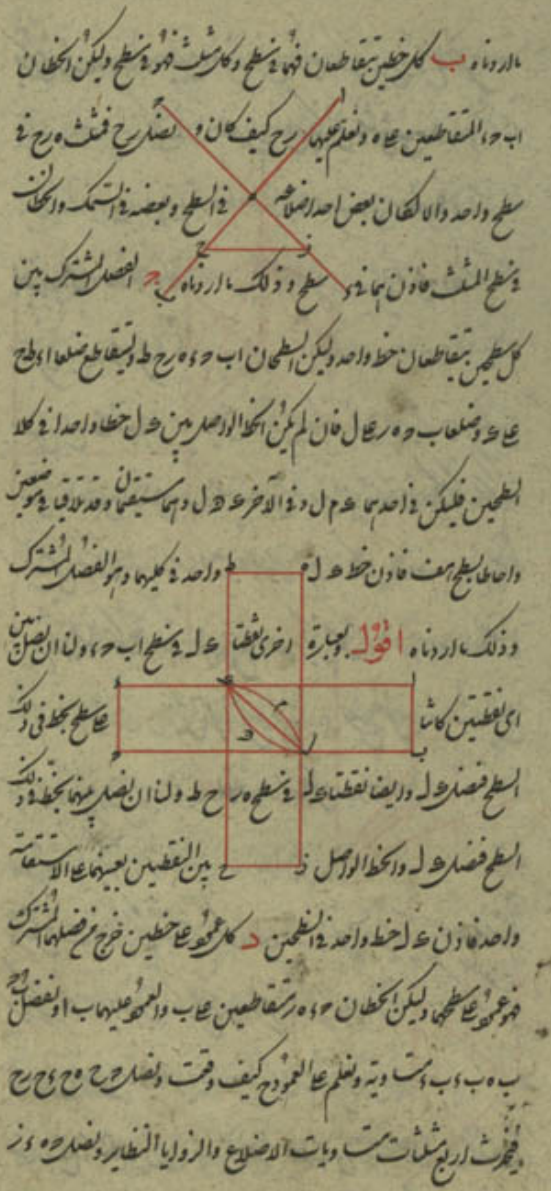 ما اردناه ب كل خطين يتقاطعان فهما فى سطح وكل مثلث فهو فى سطح وليكن الخطان
اب ح د المتقاطعين على ه ونعلم عليهما ر ح كيف كان ونصل ر ح فمثلث ه ر ح فى
سطح واحد والا لكان بعض احد اضلاعه فى السطح وبعضه فى السمك والخطان
فى سطح المثلث فاذن هما فى سطح وذلك ما اردناه ج الفصل المشترك بين
كل سطحين يتقاطعان خط واحد وليكن السطحان اب ح د ه ر ح ط وليتقاطع ضلعا ا د ط ح
على ك وضلعا ب ح ه ر على ل فان لم يكن الخط الواصل بين ك ل خطا واحدا فى كلا
السطحين فليكن فى احدهما ك م ل وفى الآخر ك ه ل وهما مستقيمان وقد تلاقيا فى موضعين
واحاطا بسطح هف فاذن خط ك ل واحد فى كليهما وهو الفصل المشترك
وذلك ما اردناه اقول وبعبارة اخرى نقطتا ك ل فى سطح اب ح د ولنا ان نصل بين
اى نقطتين كانتا على سطح بخط فى ذلك
السطح فنصل ك ل وايضا نقطتا ك ل فى سطح ه ر ح ط ولنا ان نصل بينهما بخط فى ذلك
السطح فنصل ك ل والخط الواصل بين النقطتين بعينهما على الاستقامة
واحد فاذن ك ل خط واحد فى السطحين د كل عمود على خطين خرج من فصلهما المشترك
فهو عمود على سطحهما وليكن الخطان ح د ه ر متقاطعين على ب والعمود عليهما ب ا ونفصل ب ح
ب ه ب د ب ر متساوية ونعلم على العمود ح كيف وقعت ونصل ح ح ه ح د ح ر ح
فيحدث اربع مثلثات متساويات الاضلاع والزوايا النظاير ونصل ح ه د ر